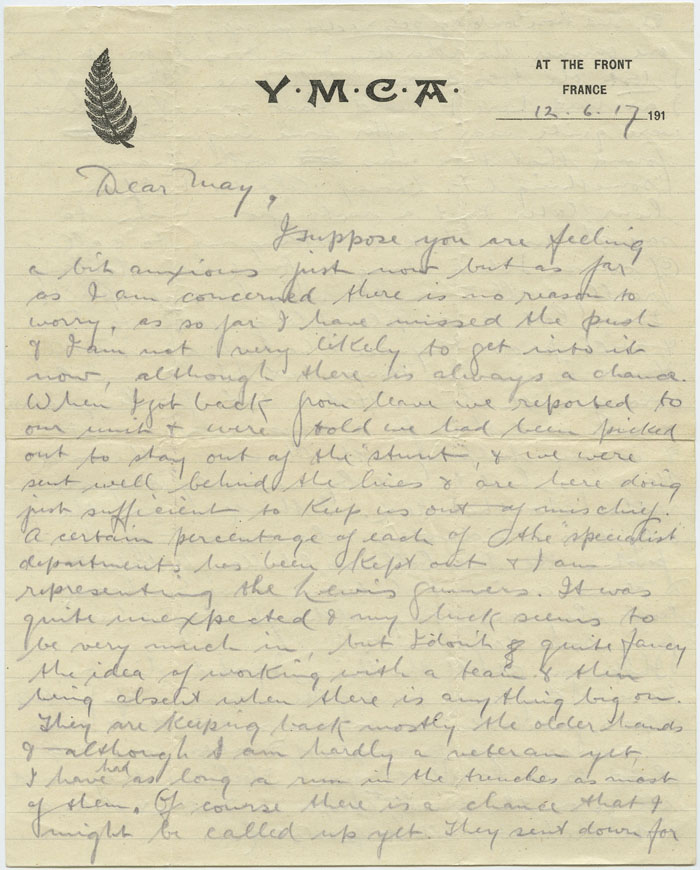 Y·M·C·A·
AT THE FRONT
FRANCE
12.6.17 191
Dear May,
I suppose you are feeling
a bit anxious just now but as far
as I am concerned there is no reason to
worry, as so far I have missed the push
& I am not very likely to get into it
now, although there is always a chance.
When I got back from leave we reported to
our unit & were told we had been picked
out to stay out of the "stunt", & we were
sent well behind the lines & are here doing
just sufficient to keep us out of mischief.
A certain percentage of each of the "specialist
departments has been kept out & I am
representing the Lewis gunners. It was
quite unexpected & my luck seems to
be very much in, but I don't quite fancy
the idea of working with a team & then
being absent when there is anything big on.
They are keeping back mostly the older hands
& although I am hardly a veteran yet,
I have had as long a run in the trenches as most
of them. Of course there is a chance that I
might be called up yet. They sent down for